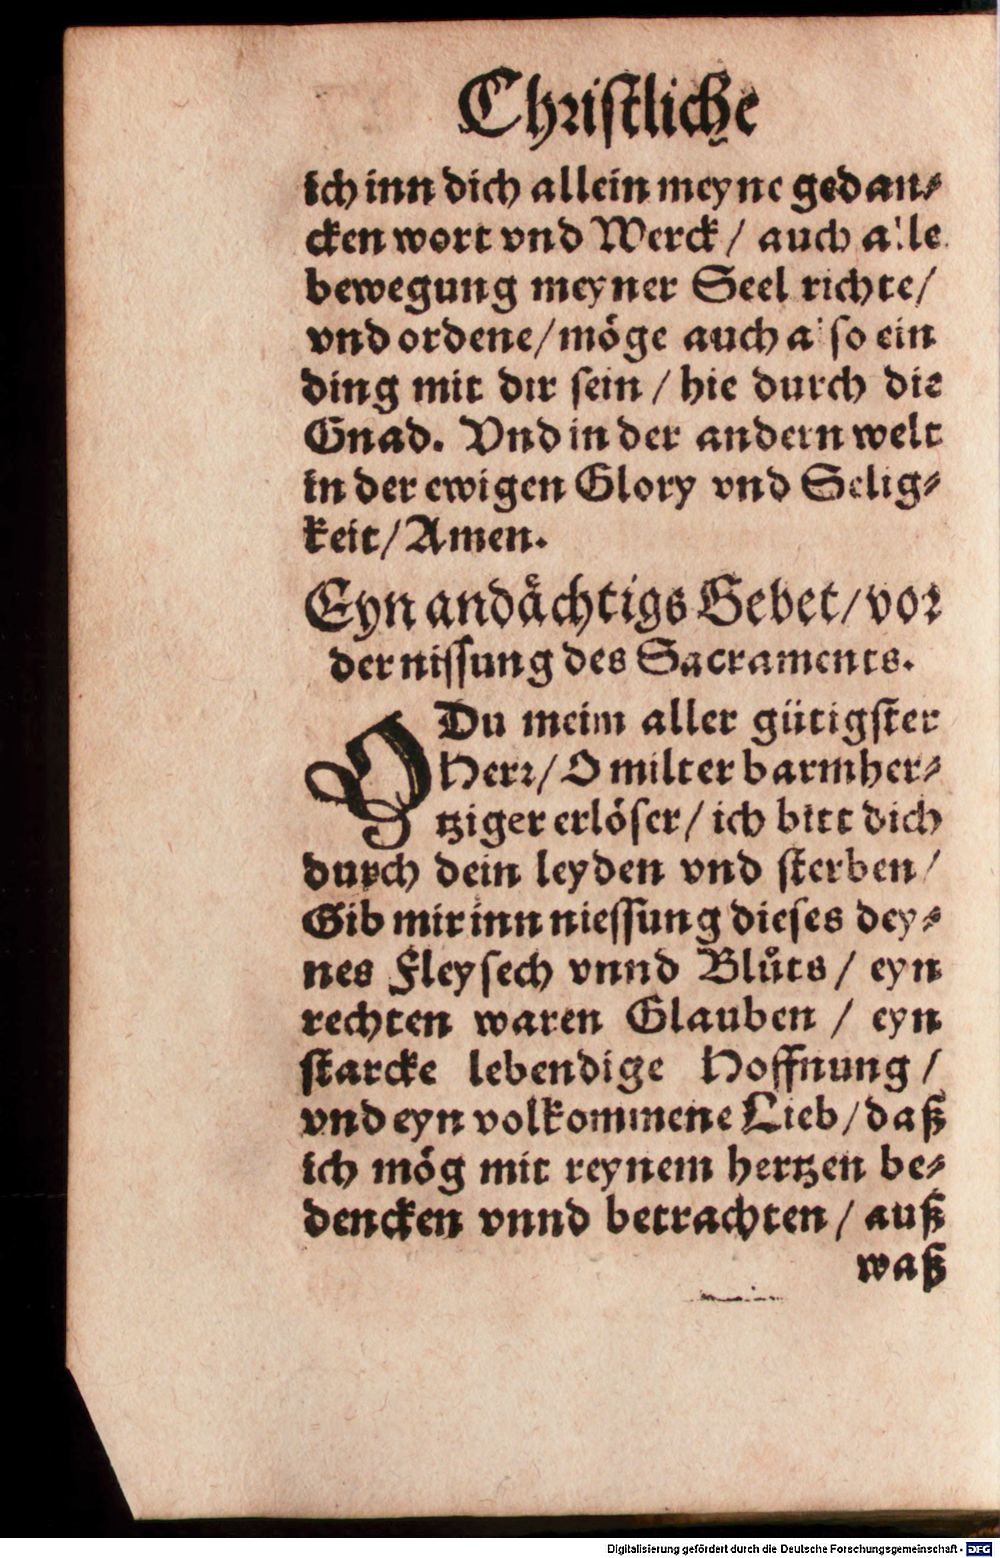 Christliche
ich inn dich allein meyne gedan⸗
cken wort vnd Werck / auch alle
bewegung meyner Seel richte /
vnd ordene / möge auch also ein
ding mit dir sein / hie durch die
Gnad. Vnd in der andern welt
in der ewigen Glory vnd Selig⸗
keit / Amen.
Eyn andåchtigs Gebet / vor
der nissung des Sacraments.
O Du meim aller gütigster
Herr / O milter barmher⸗
tziger erlöser / ich bitt dich
durch dein leyden vnd sterben /
Gib mir inn niessung dieses dey⸗
nes Fleysech vnnd Blůts / eyn
rechten waren Glauben / eyn
starcke lebendige Hoffnung /
vnd eyn volkommene Lieb / daß
ich mög mit reynem hertzen be⸗
dencken vnnd betrachten / auß
waß
Digitalisierung gefördert durch die Deutsche Forschungsgemeinschaft - DFG